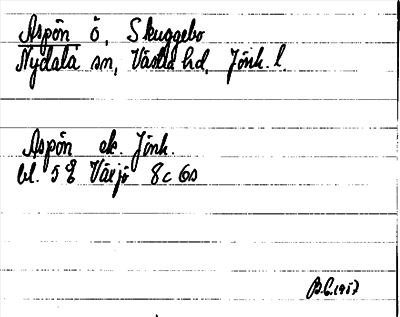 Aspön ö, Skuggebo
Nydala sn, Västbo hd, Jönk. l.
Aspön ek. Jönk.
bl. 5E Växjö 8c 60